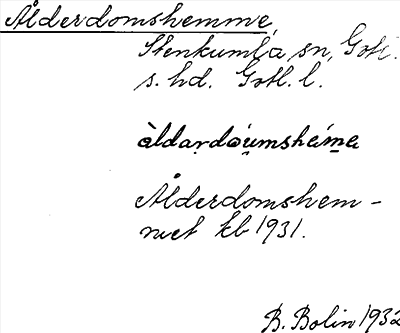 Ålderdomshemme,
Stenkumla sn, Gotl.
s. hd. Gotl. l.
àldaṛdóu̯msháme
Ålderdomshem-
met kb 1931.
B. Bolin 1932